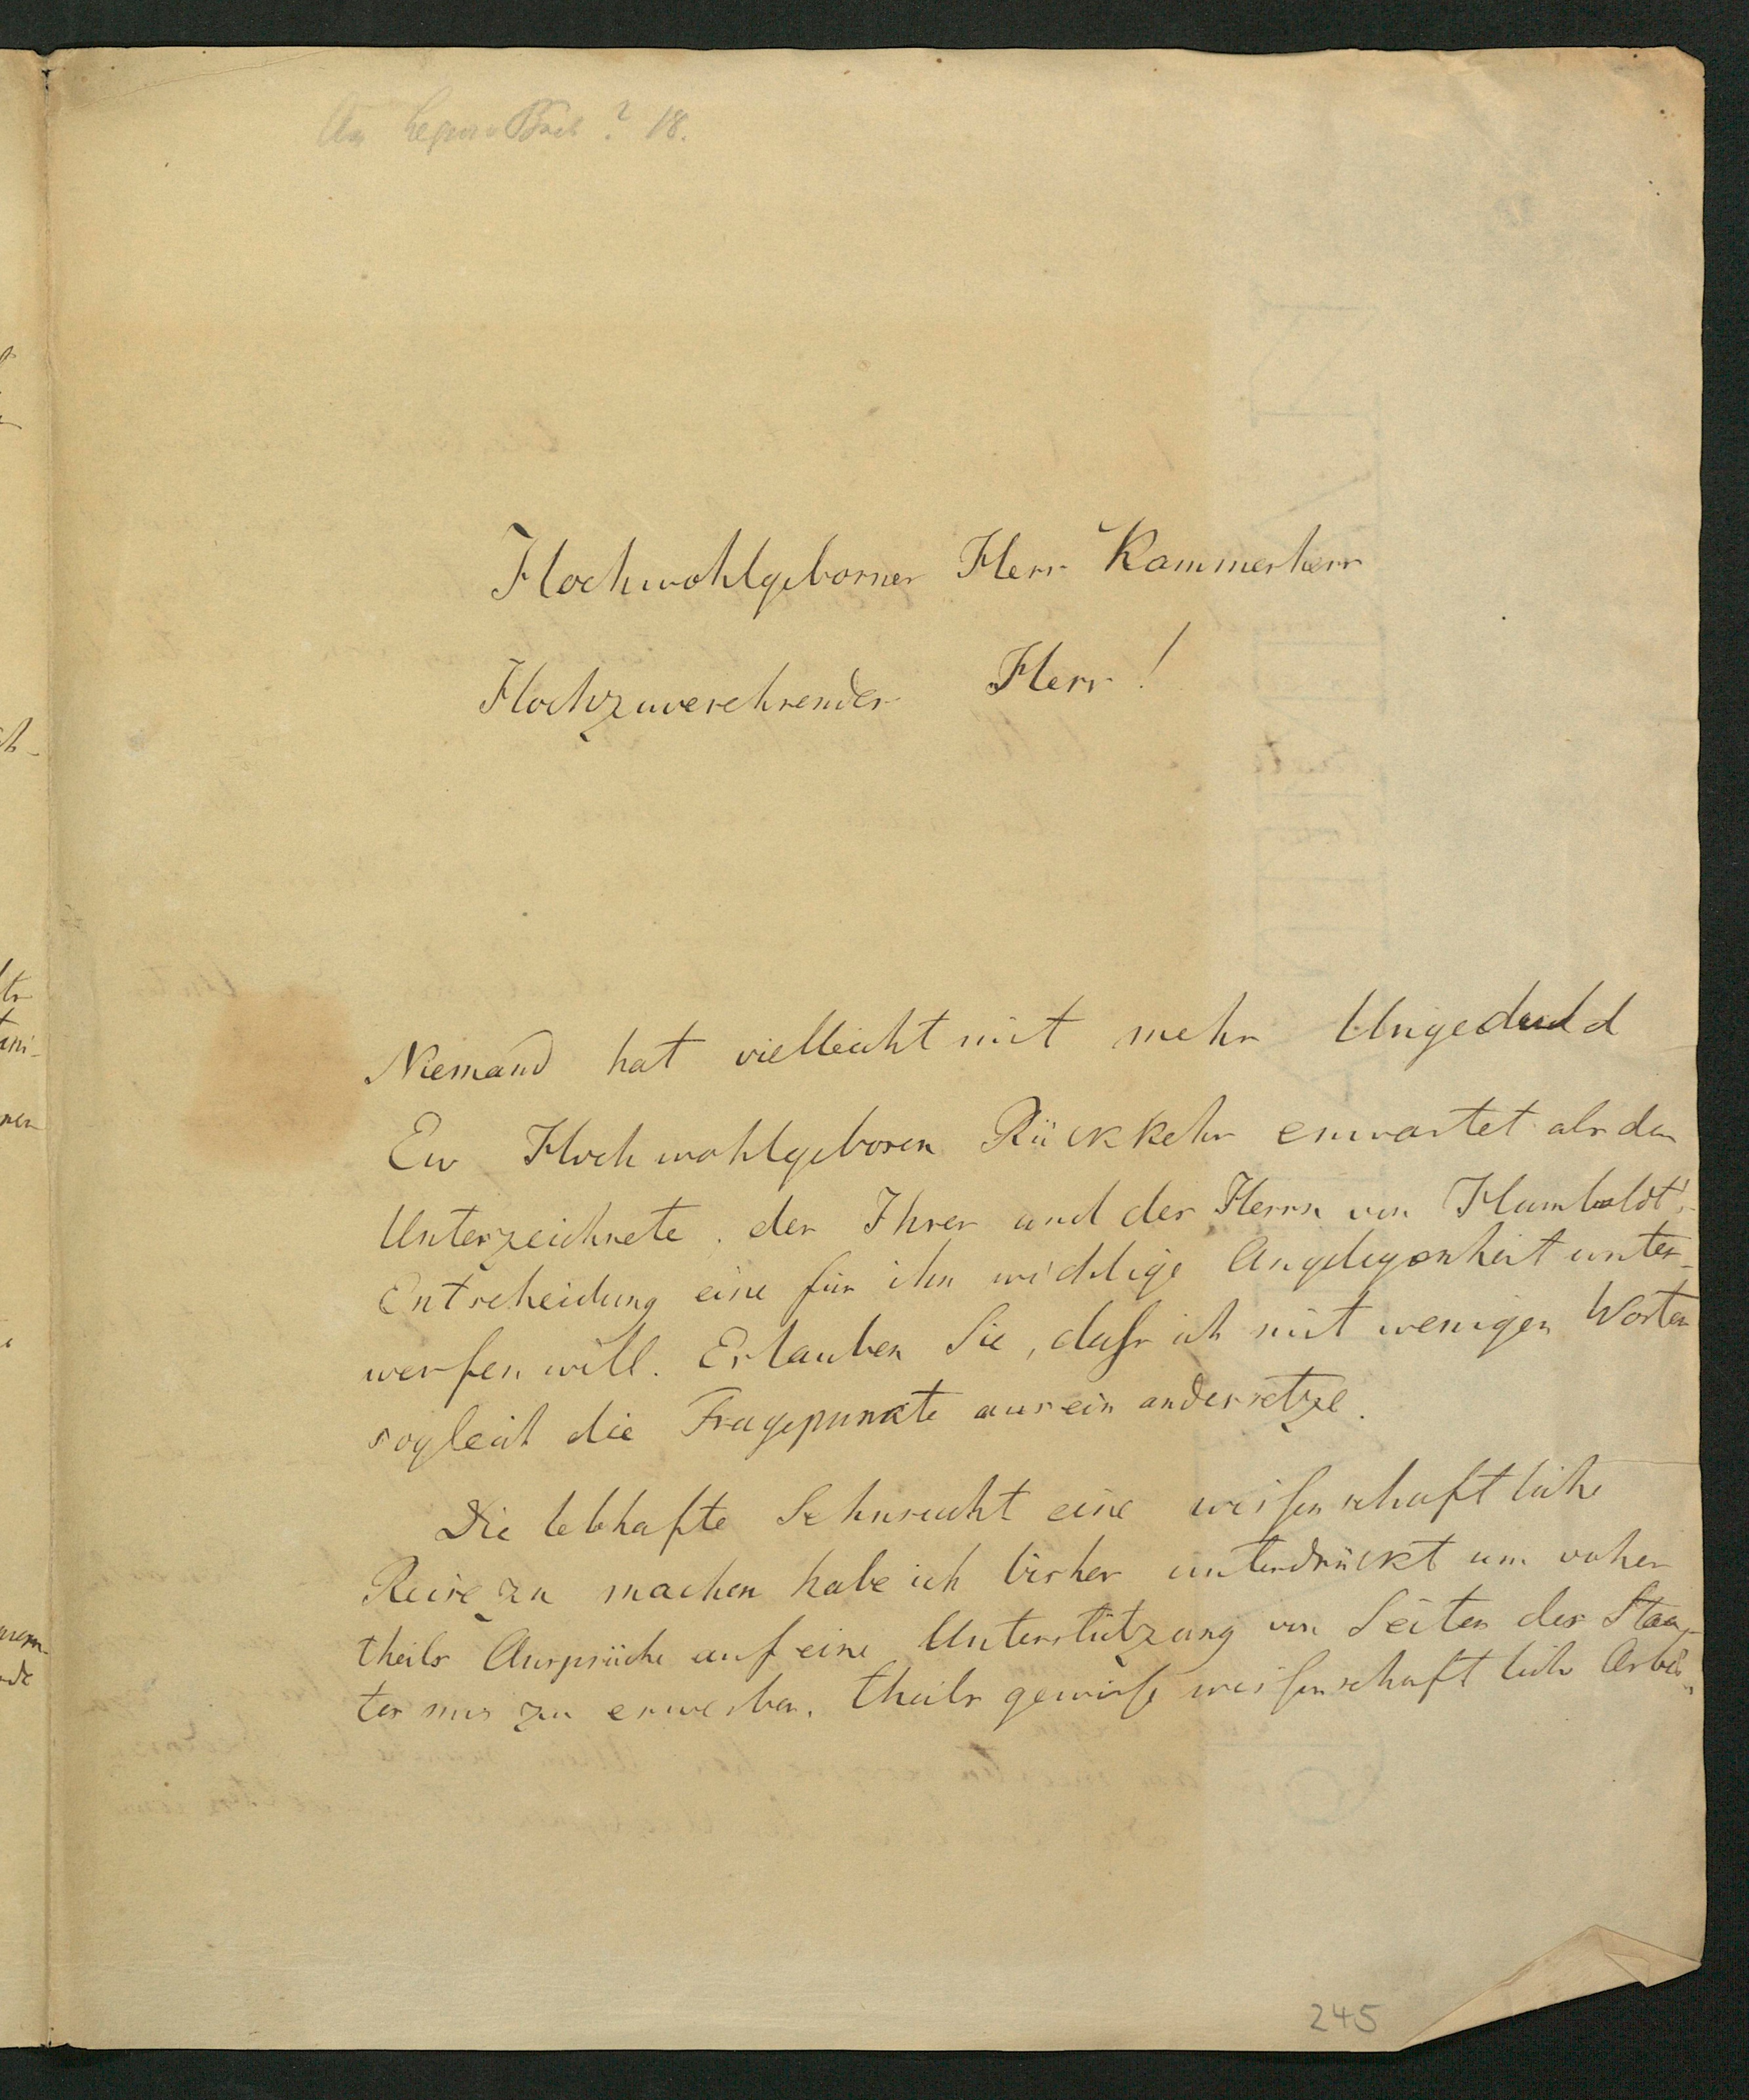 An Leop. v Buch ? 18.
Hochwohlgeborner Herr Kammerherr
Hochzuverehrender Herr!
Niemand hat vielleicht mit mehr Ungeduld
Ew Hochwohlgeboren Rückkehr erwartet als der
Unterzeichnete, der Ihrer und des Herrn von Humboldt's
Entscheidung eine für ihn wichtige Angelegenheit unter-
werfen will. Erlauben Sie, daſs ich mit wenigen Worten
sogleich die Fragepunkte auseinandersetze.
Die lebhafte Sehnsucht eine wiſsenschaftliche
Reise zu machen habe ich bisher unterdrückt um vorher
theils Ansprüche auf eine Unterstützung von Seiten des Staa-
tes mir zu erwerben, theils gewiſse wiſsenschaftliche Arbei-
245